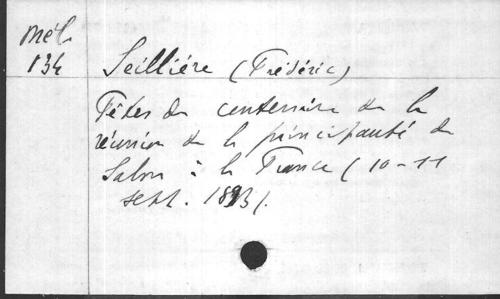 Mél.
134
Seillière (Frédéric)
Fêtes du centenaire de la
réunion de la principauté de
Salm à la France (10-11
sept. 1893).